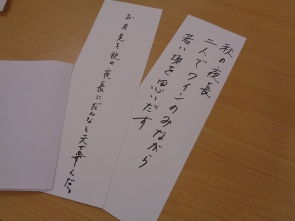 秋の夜長
二人でワインのみながら
若い頃を思いだす
お月見を秋の夜長にだんなと